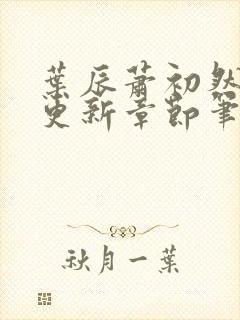 葉辰蕭初然
更新章節筆
秋月一葉